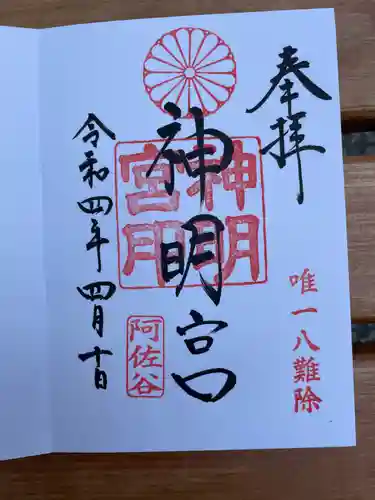 奉拝
唯一八難除
神明宮
神明
宮用
阿佐谷
令和四年四月十日